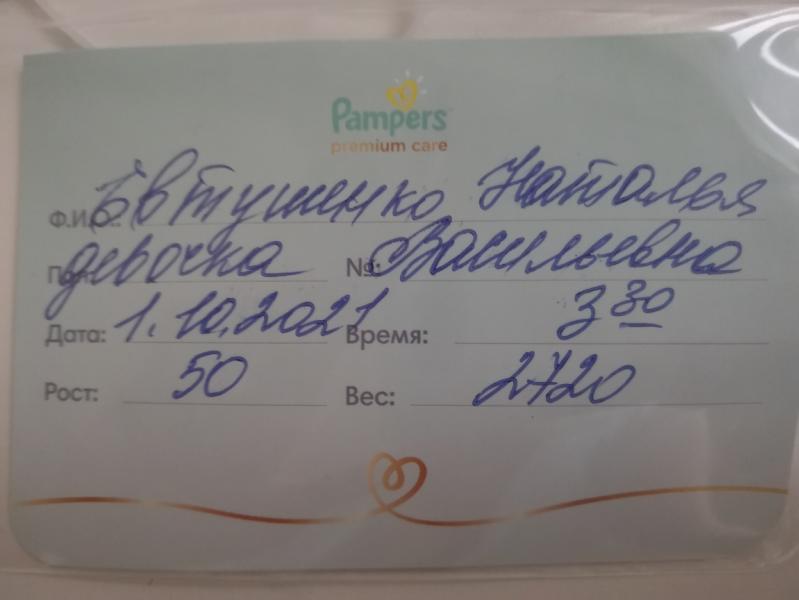 Pampers
premium care
Ф.И.О.: Евтушенко Наталья
Пол: девочка №: Васильевна
Дата: 1.10.2021 Время: 3 30
Рост: 50 Вес: 2720